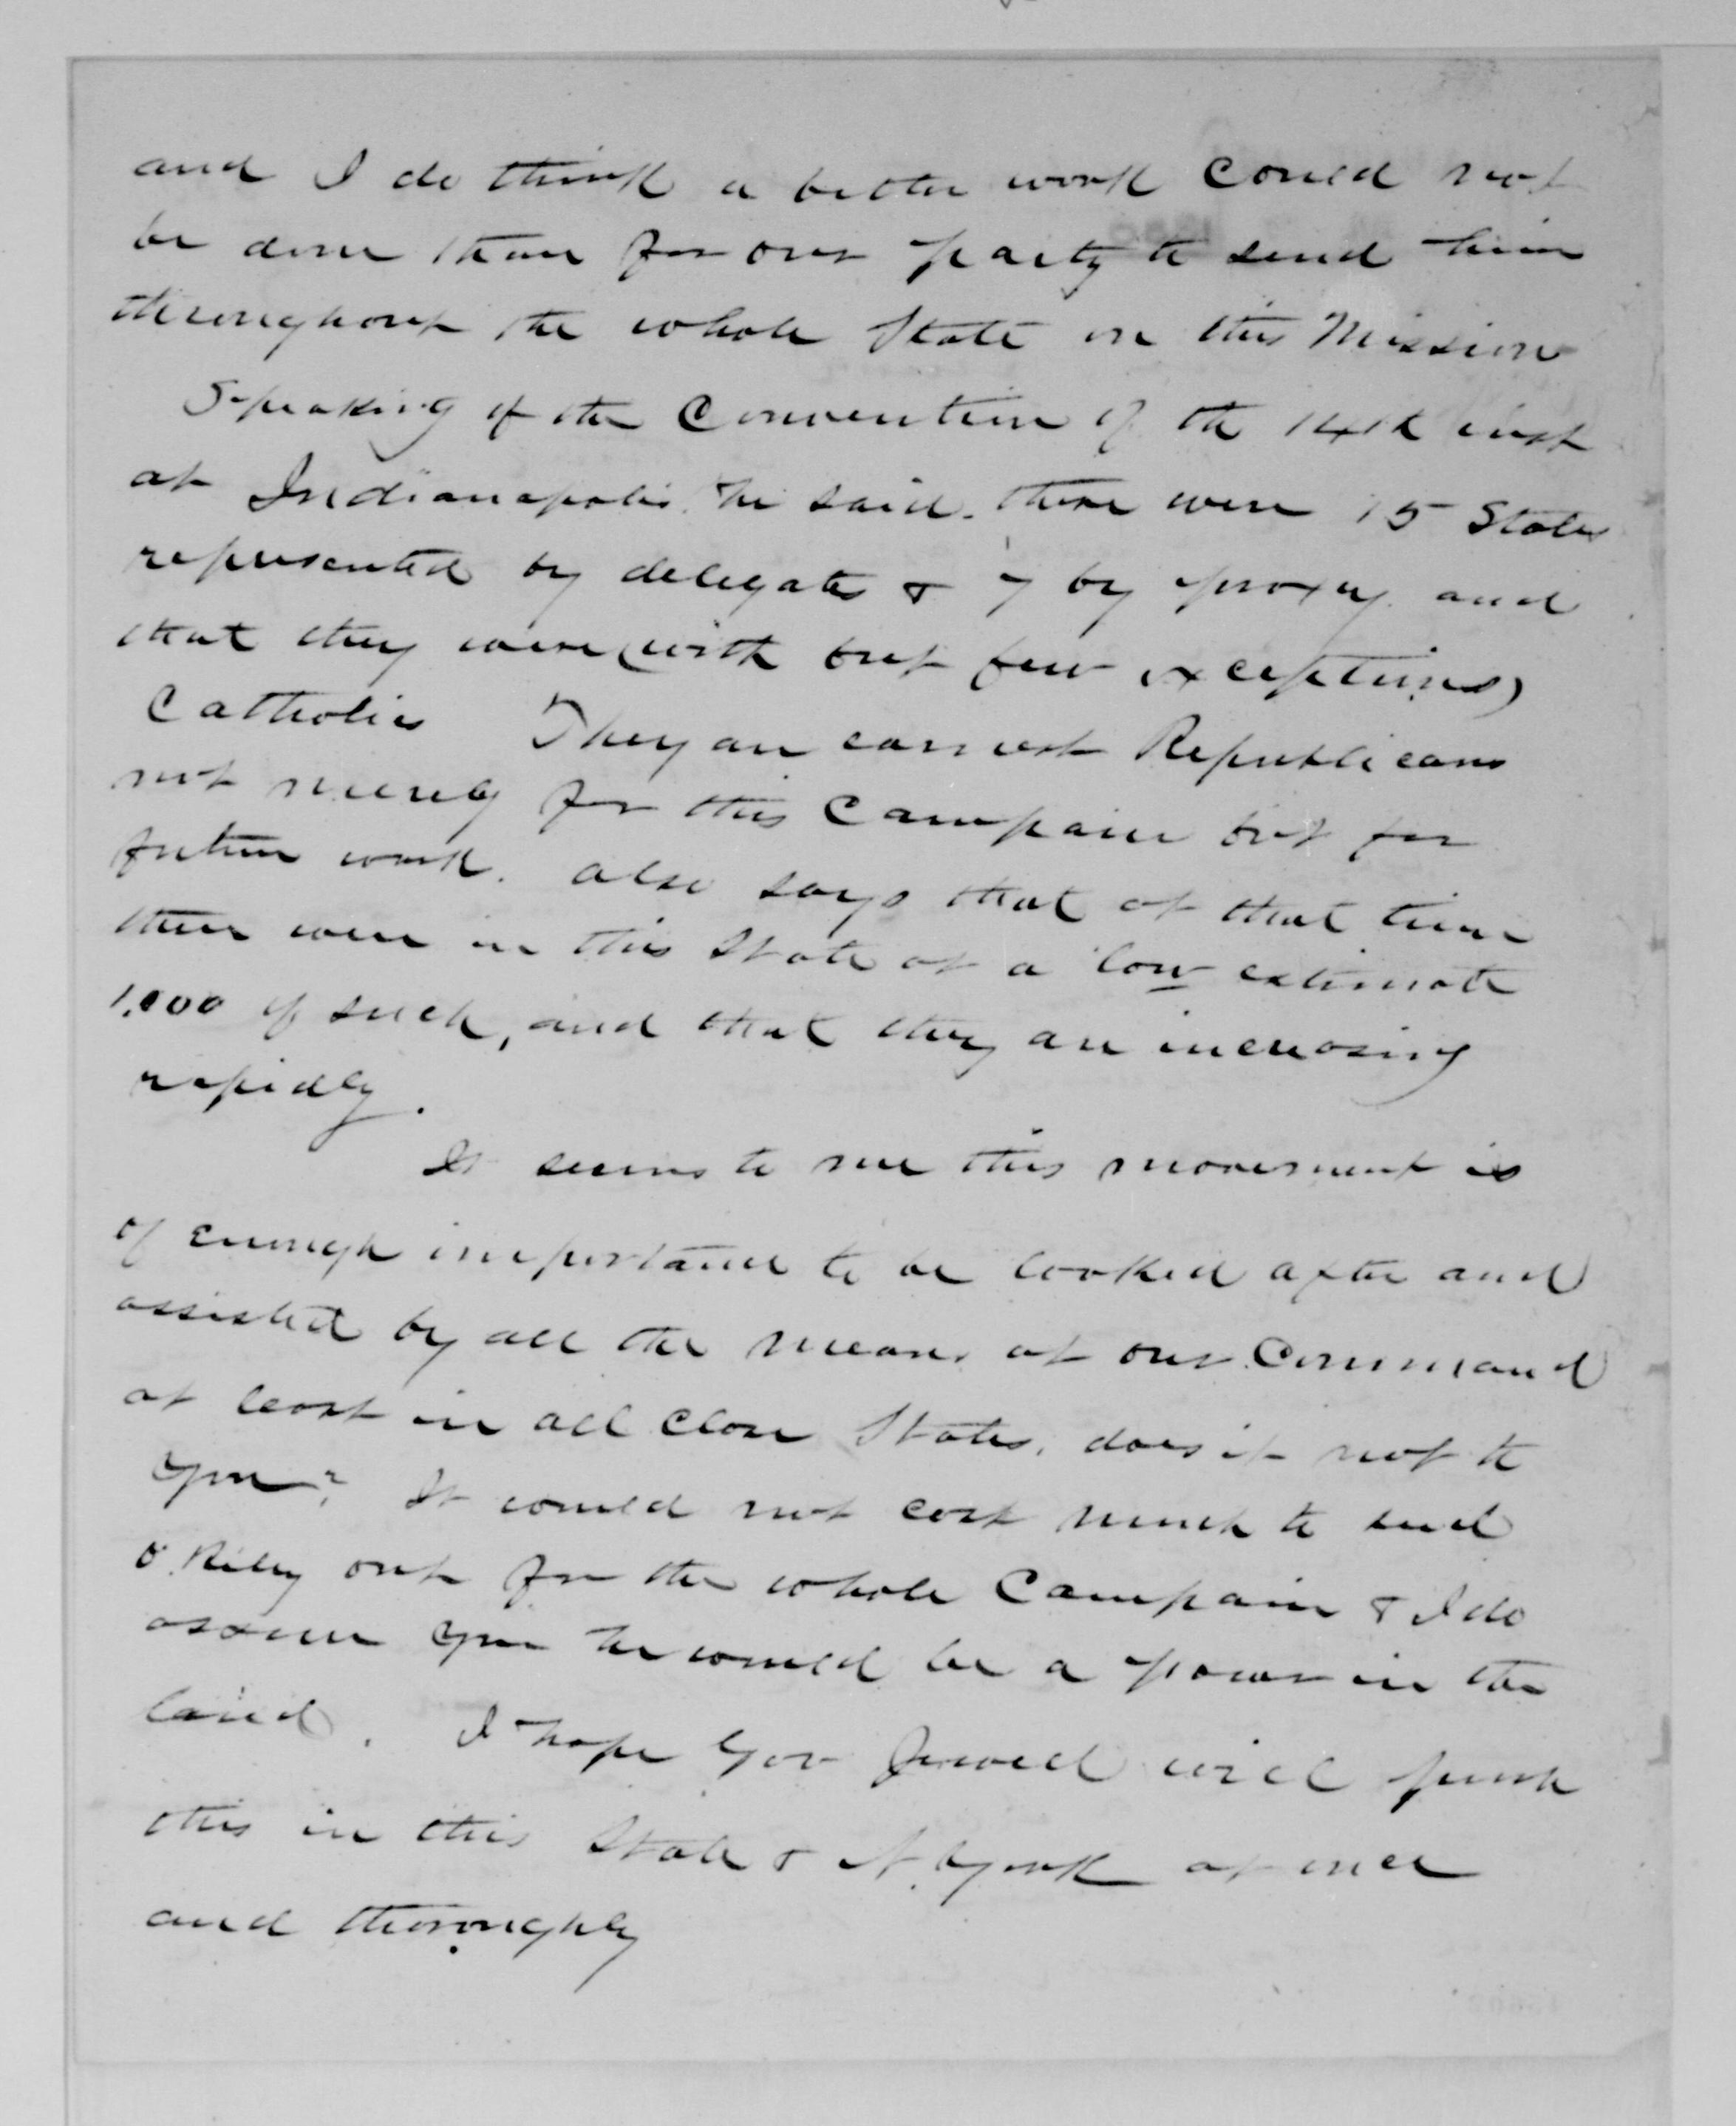 and I do think a better work could not
be done than for our party to send him
throughout the whole State on this Mission
Speaking of the Convention of the 14th inst
at Indianapolis he said. there were 15 States
represented by delegates & 7 by proxy. and
that they were (with but few exceptions)
Catholics They are earnest Republicans
not merely for this Campain but for
future work. also says that at that time
there were in this State at a low estimate
1.000 of such, and that they are increasing
rapidly.
It seems to me this movement is
of enough importance to be looked after and
assisted by all the means at our Command
at least in all close States, does it not to
you? It would not cost much to send
O.Riley out for the whole Campain & I do
assure you he would be a power in the
land. I hope Gov Jewell will push
this in this State & N. York at once
and thoroughly